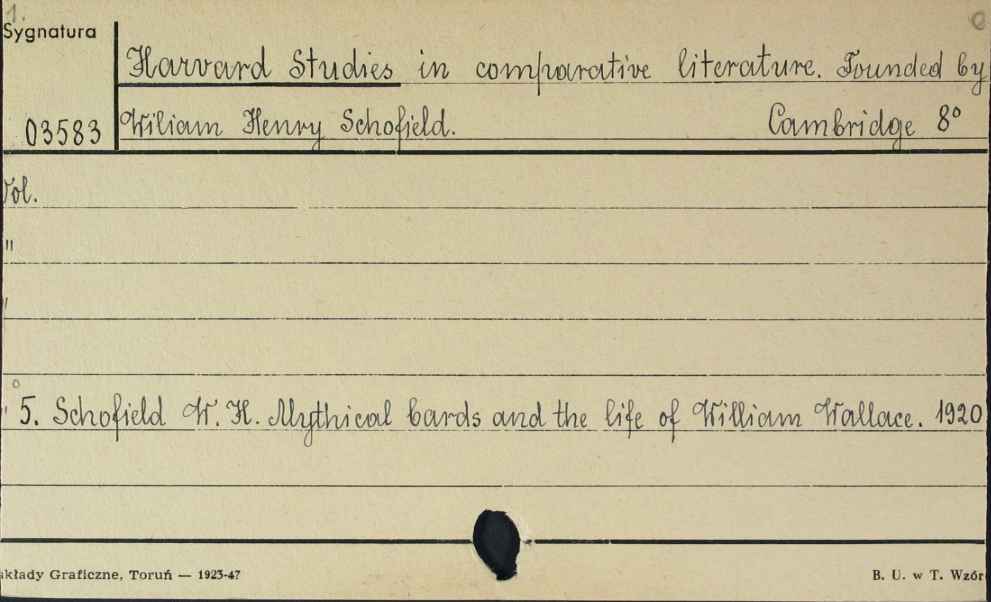 1.
Sygnatura
Harvard Studies in comparative literature. Founded by
03583 Wiliam Henry Schofield. Cambridge 8°
Vol.
"
"
" 5. Schofield W. H. Mythical bards and the life of William Wallace. 1920
akłady Graficzne, Toruń — 1923-47
B. U. w T. Wzór